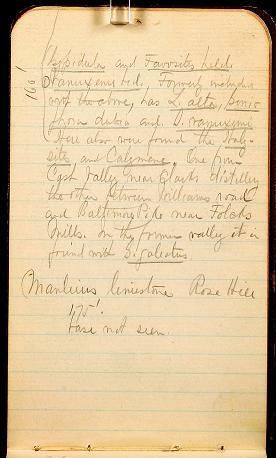 Gypidula and Favosites helder
160'
Vanuxemi bed. Formerly
with the above, has L. alta,
dubia and S. vanuxemi
Here also were found the
and Calymene. One from
Cash Valley near Clarks distillery
the other between Williams road
and Baltimore Pike near Folcks
Mills. In the former valley it is
found with S. galeatus
Manlius limestone Rose Hill
475'.
Base not seen.